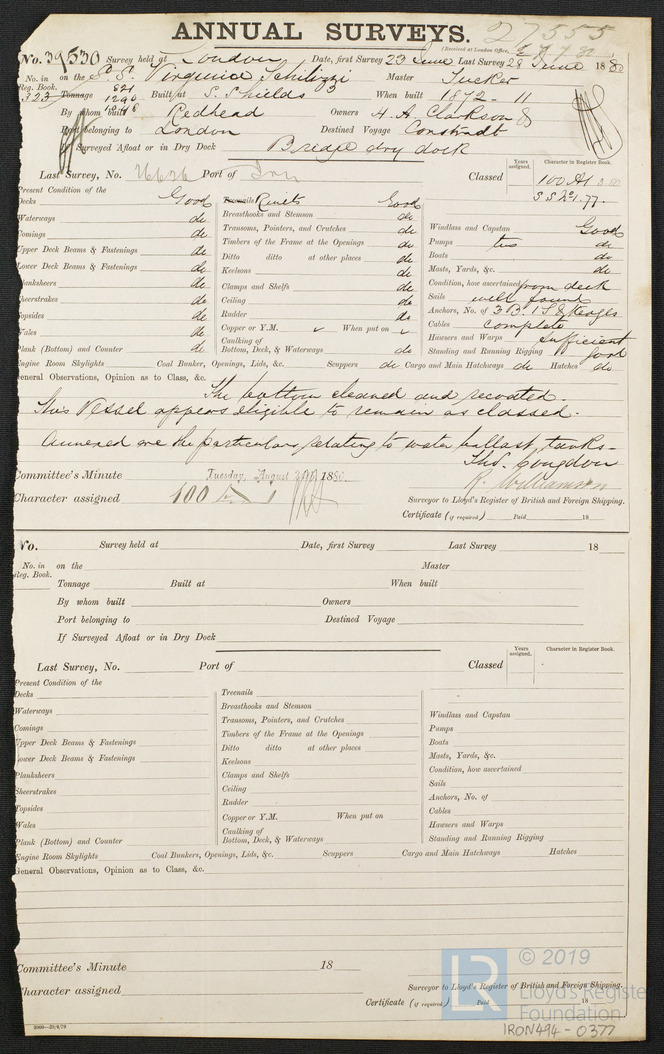 ANNUAL SURVEYS. 27555
(Received at London Office,
No. 39530 Survey held at London Date, first Survey 23 June Last Survey 28 June 1880
No. in Reg. Book. on the S.S. Virginia Schilizzi Master Tucker
323 Tonnage 821 1290 Built at S. Shields When built 1872 - 11
By whom built Redhead Owners H. A. Clarkson &
Port belonging to London Destined Voyage
If Surveyed Afloat or in Dry Dock Bridge dry dock
Years assigned. Character in Register Book.
Last Survey, No. Port of Iron Classed 100 A1
S S No 1. 77.
Present Condition of the
Decks Good
Waterways do
Comings do
Upper Deck Beams & Fastenings do
Lower Deck Beams & Fastenings do
Planksheers do
Sheerstrakes do
Topsides do
Wales do
Plank (Bottom) and Counter do
Treenails Rivets Good
Breasthooks and Stemson do
Transoms, Pointers, and Crutches do
Timbers of the Frame at the Openings do
Ditto ditto at other places do
Keelsons do
Clamps and Shelfs do
Ceiling do
Rudder do
Copper or Y.M. When put on
Caulking of Bottom, Deck, & Waterways do
Windlass and Capstan Good
Pumps two do
Boats do
Masts, Yards, &c. do
Condition, how ascertained from deck
Sails well found
Anchors, No. of 3 B. 1 S & Kedges
Cables complete
Hawsers and Warps sufficient
Standing and Running Rigging Good
Engine Room Skylights Coal Bunkers, Openings, Lids, &c. Scuppers do Cargo and Main Hatchways do Hatches do
General Observations, Opinion as to Class, &c.
The bottom cleaned and recoated.
This Vessel appears eligible to remain as classed.
Annexed are the particulars relating to water ballast tanks -
Thos. Congdon
Committee's Minute Tuesday, August 1880.
R. Williamson
Character assigned 100 A 1
Surveyor to Lloyd's Register of British and Foreign Shipping.
Certificate (if required) Paid 18
No. Survey held at Date, first Survey Last Survey 18
No. in Reg. Book. on the Master
Tonnage Built at When built
By whom built Owners
Port belonging to Destined Voyage
If Surveyed Afloat or in Dry Dock
Years assigned. Character in Register Book.
Last Survey, No. Port of Classed
Present Condition of the
Decks
Waterways
Comings
Upper Deck Beams & Fastenings
Lower Deck Beams & Fastenings
Planksheers
Sheerstrakes
Topsides
Wales
Plank (Bottom) and Counter
Treenails
Breasthooks and Stemson
Transoms, Pointers, and Crutches
Timbers of the Frame at the Openings
Ditto ditto at other places
Keelsons
Clamps and Shelfs
Ceiling
Rudder
Copper or Y.M. When put on
Caulking of Bottom, Deck, & Waterways
Windlass and Capstan
Pumps
Boats
Masts, Yards, &c.
Condition, how ascertained
Sails
Anchors, No. of
Cables
Hawsers and Warps
Standing and Running Rigging
Engine Room Skylights Coal Bunkers, Openings, Lids, &c. Scuppers Cargo and Main Hatchways Hatches
General Observations, Opinion as to Class, &c.
Committee's Minute 18
Character assigned
Surveyor to Lloyd's Register of British and Foreign Shipping.
Certificate (if required) Paid 18
LR © 2019
Lloyd's Register
Foundation
IRON494-0377